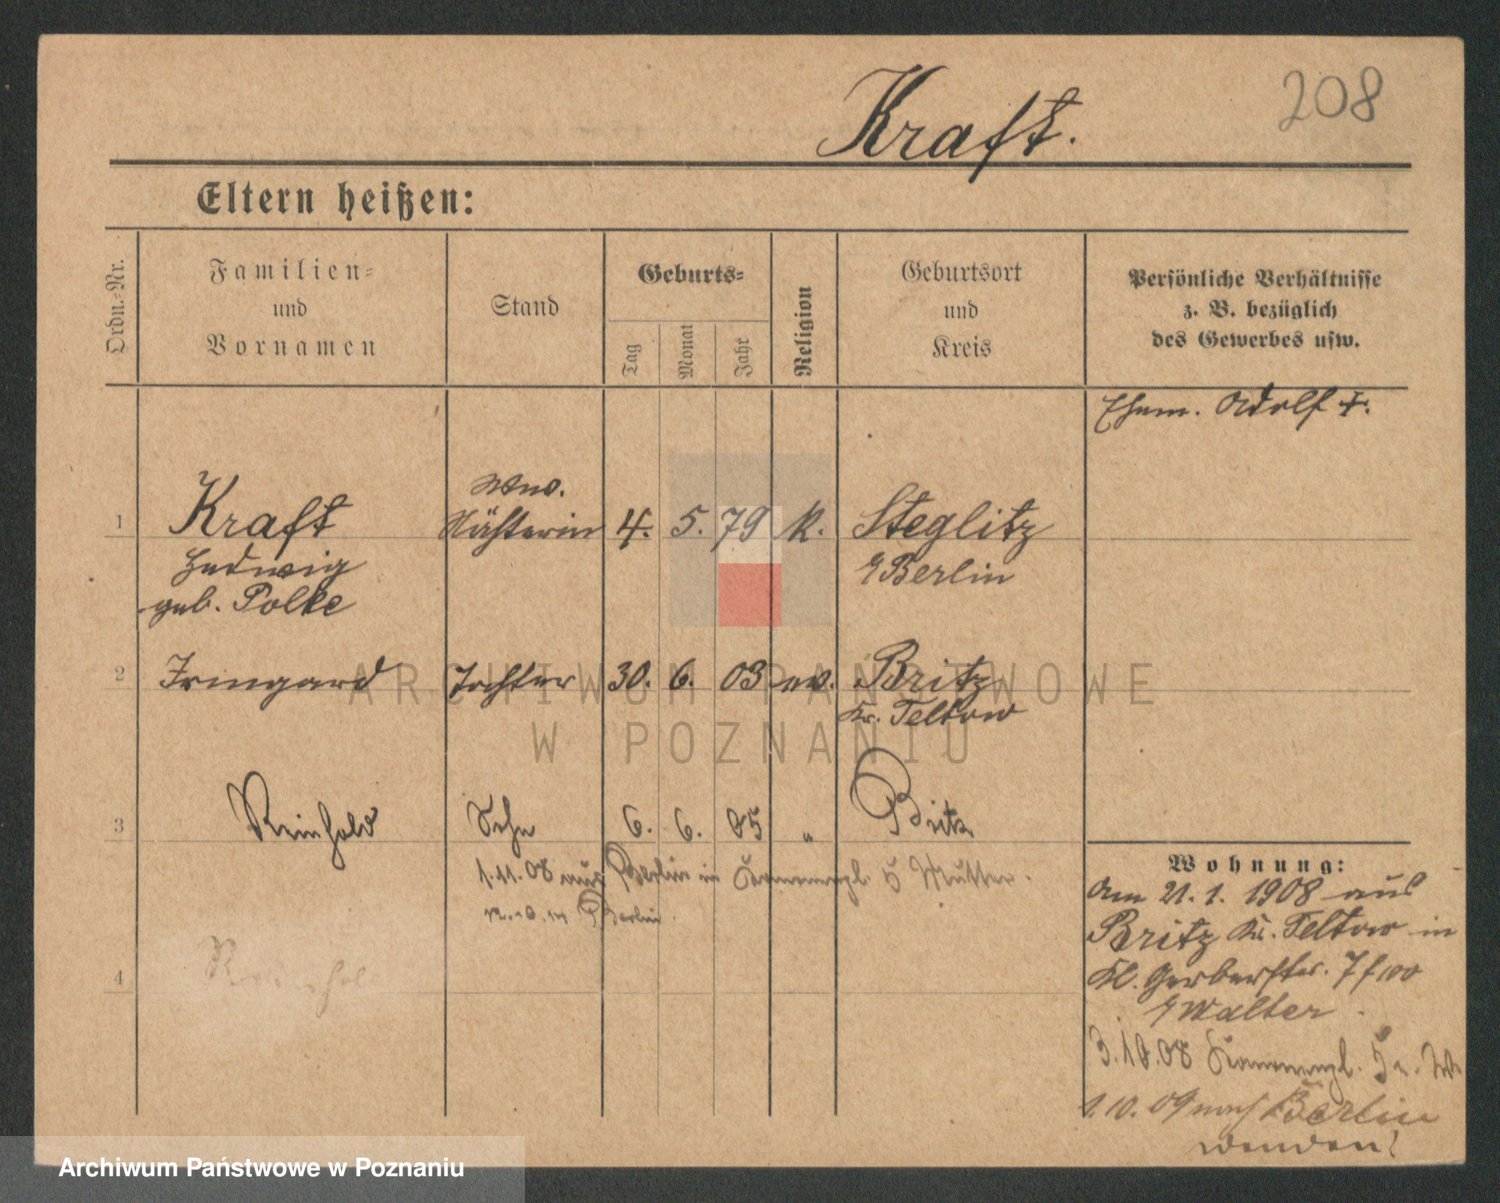 208
Kraft.
Eltern heißen:
Ordn.=Nr.
Familien=
und
Vornamen
Stand
Geburts=
Tag
Monat
Jahr
Religion
Geburtsort
und
Kreis
Persönliche Verhältnisse
z. B. bezüglich
des Gewerbes usw.
Ehem. Adolf †.
1 Kraft Wwe. Nähterin 4. 5. 79 k. Steglitz
Hedwig Berlin
geb. Polke
2 Irmgard Tochter 30. 6. 03 ev. Britz
Kr. Teltow
3 Reinhold Sohn 6. 6. 05 " Britz
1.11.08 aus Berlin in 5 Mutter.
Berlin.
4
Wohnung:
Am 21. 1. 1908 aus
Britz Kr. Teltow in
Kl. Gerberstr.
Walter
3.10.08 5
1.10.09 nach Berlin
wenden!
ARCHIWUM PAŃSTWOWE
W POZNANIU
Archiwum Państwowe w Poznaniu